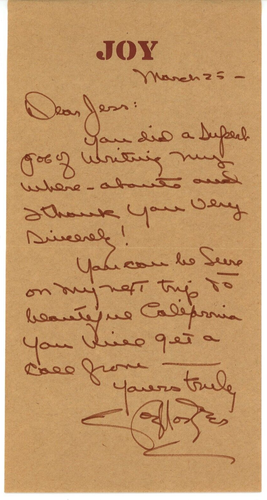 JOY
March 25 -
Dear Jess:
You did a superb
job of writing my
where-abouts and
I thank you very
sincerely!
You can be sure
on my next trip to
beautiful California
you will get a
call from —
yours truly